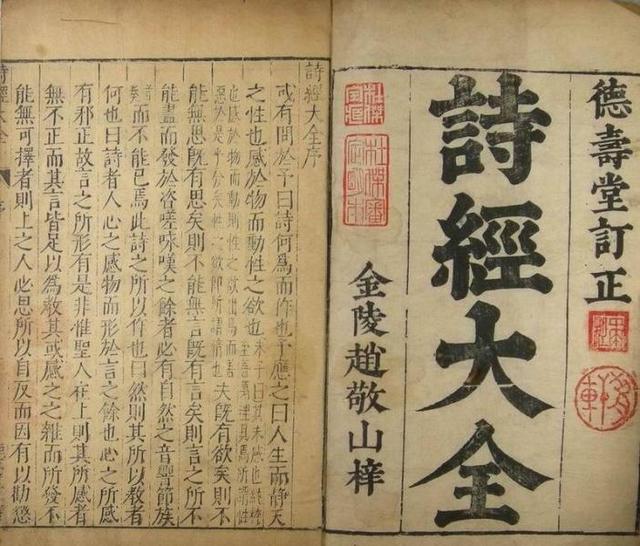 德壽堂訂正
詩經大全
金陵趙敬山梓
詩經大全序
或有問於予曰詩何爲而作也予應之曰人生而靜天
之性也感於物而動性之欲也
夫既有欲矣則不
能無思既有思矣則不能無言既有言矣則言之所不
能盡而發於咨嗟咏嘆之餘者必有自然之音響節族
而不能已焉此詩之所以作也曰然則其所以教者
何也曰詩者人心之感物而形於言之餘也心之所感
有邪正故言之所形有是非惟聖人在上則其所感者
無不正而其言皆足以爲教其或感之之雜而所發不
能無可擇者則上之人必思所以自反而因有以勸懲
詩經大全
序